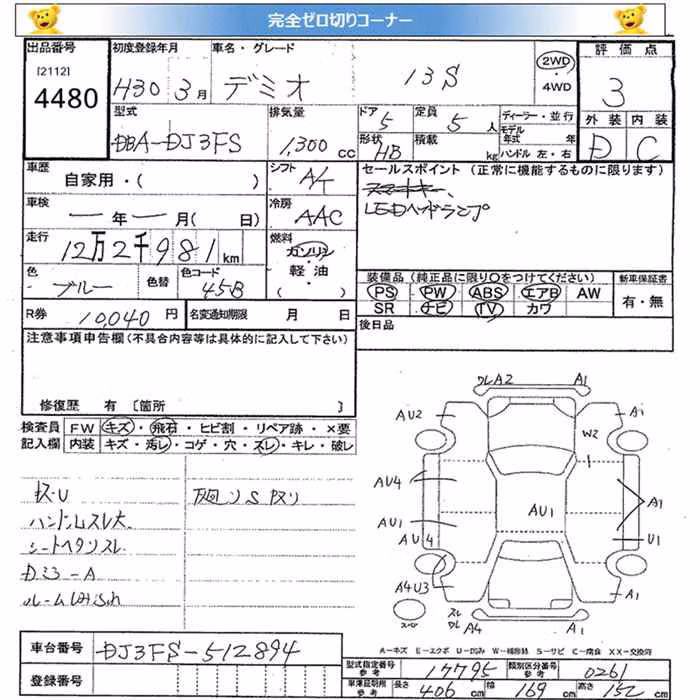 完全ゼロ切りコーナー
出品番号 初度登録年月 車名・グレード 評価点
[2112]
4480 H30 3月 デミオ 13S 2WD・4WD 3
型式 排気量 ドア 定員 ディーラー・並行 外装 内装
DBA-DJ3FS 1,300cc 5 5人 モデル年式 年 D C
形状 積載 ハンドル 左・右
HB kg
車歴 シフト セールスポイント (正常に機能するものに限ります)
自家用・( ) A/T
車検 冷房 LEDヘッドランプ
ー年ー月(日) AAC
走行 燃料
12万2千981km ガソリン・軽油( )
色 色替 色コード 装備品 (純正品に限り○をつけてください) 新車保証書
ブルー 45B PS PW ABS エアB AW 有・無
SR ナビ TV カワ
R券 10,040円 名変通知期限 月 日 後日品
注意事項申告欄(不具合内容等は具体的に記入して下さい)
修復歴 有 [箇所 ]
検査員 FW キズ・飛石・ヒビ割・リペア跡・×要
記入欄 内装 キズ・汚レ・コゲ・穴・スレ・キレ・破レ
キズ・U 下廻りSサビ
ハンドルスレ大
シートヘタリスレ
ワレA2 A1
AU2 A1
W2
AU4 AU1 A1
AU1
AU4 U1
A4U3 A1
スレ
ワレ A4 A1
A-キズ E-エクボ U-凹み W-補修跡 S-サビ C-腐食 XX-交換済
車台番号 DJ3FS-512894
型式指定番号参考 17795 類別区分番号参考 0261
登録番号 車庫証明用参考 長さ 406cm 幅 169cm 高さ 152cm